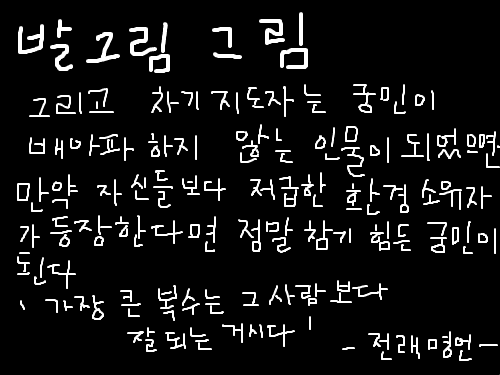 발그림 그림
그리고 차기지도자는 궁민이
배아파 하지 않는 인물이 되었으면
만약 자신들보다 저급한 환경소유자
가 등장한다면 정말 참기 힘든 궁민이
된다
' 가장 큰 복수는 그사람보다
잘되는 거시다 '
- 전래명언 -